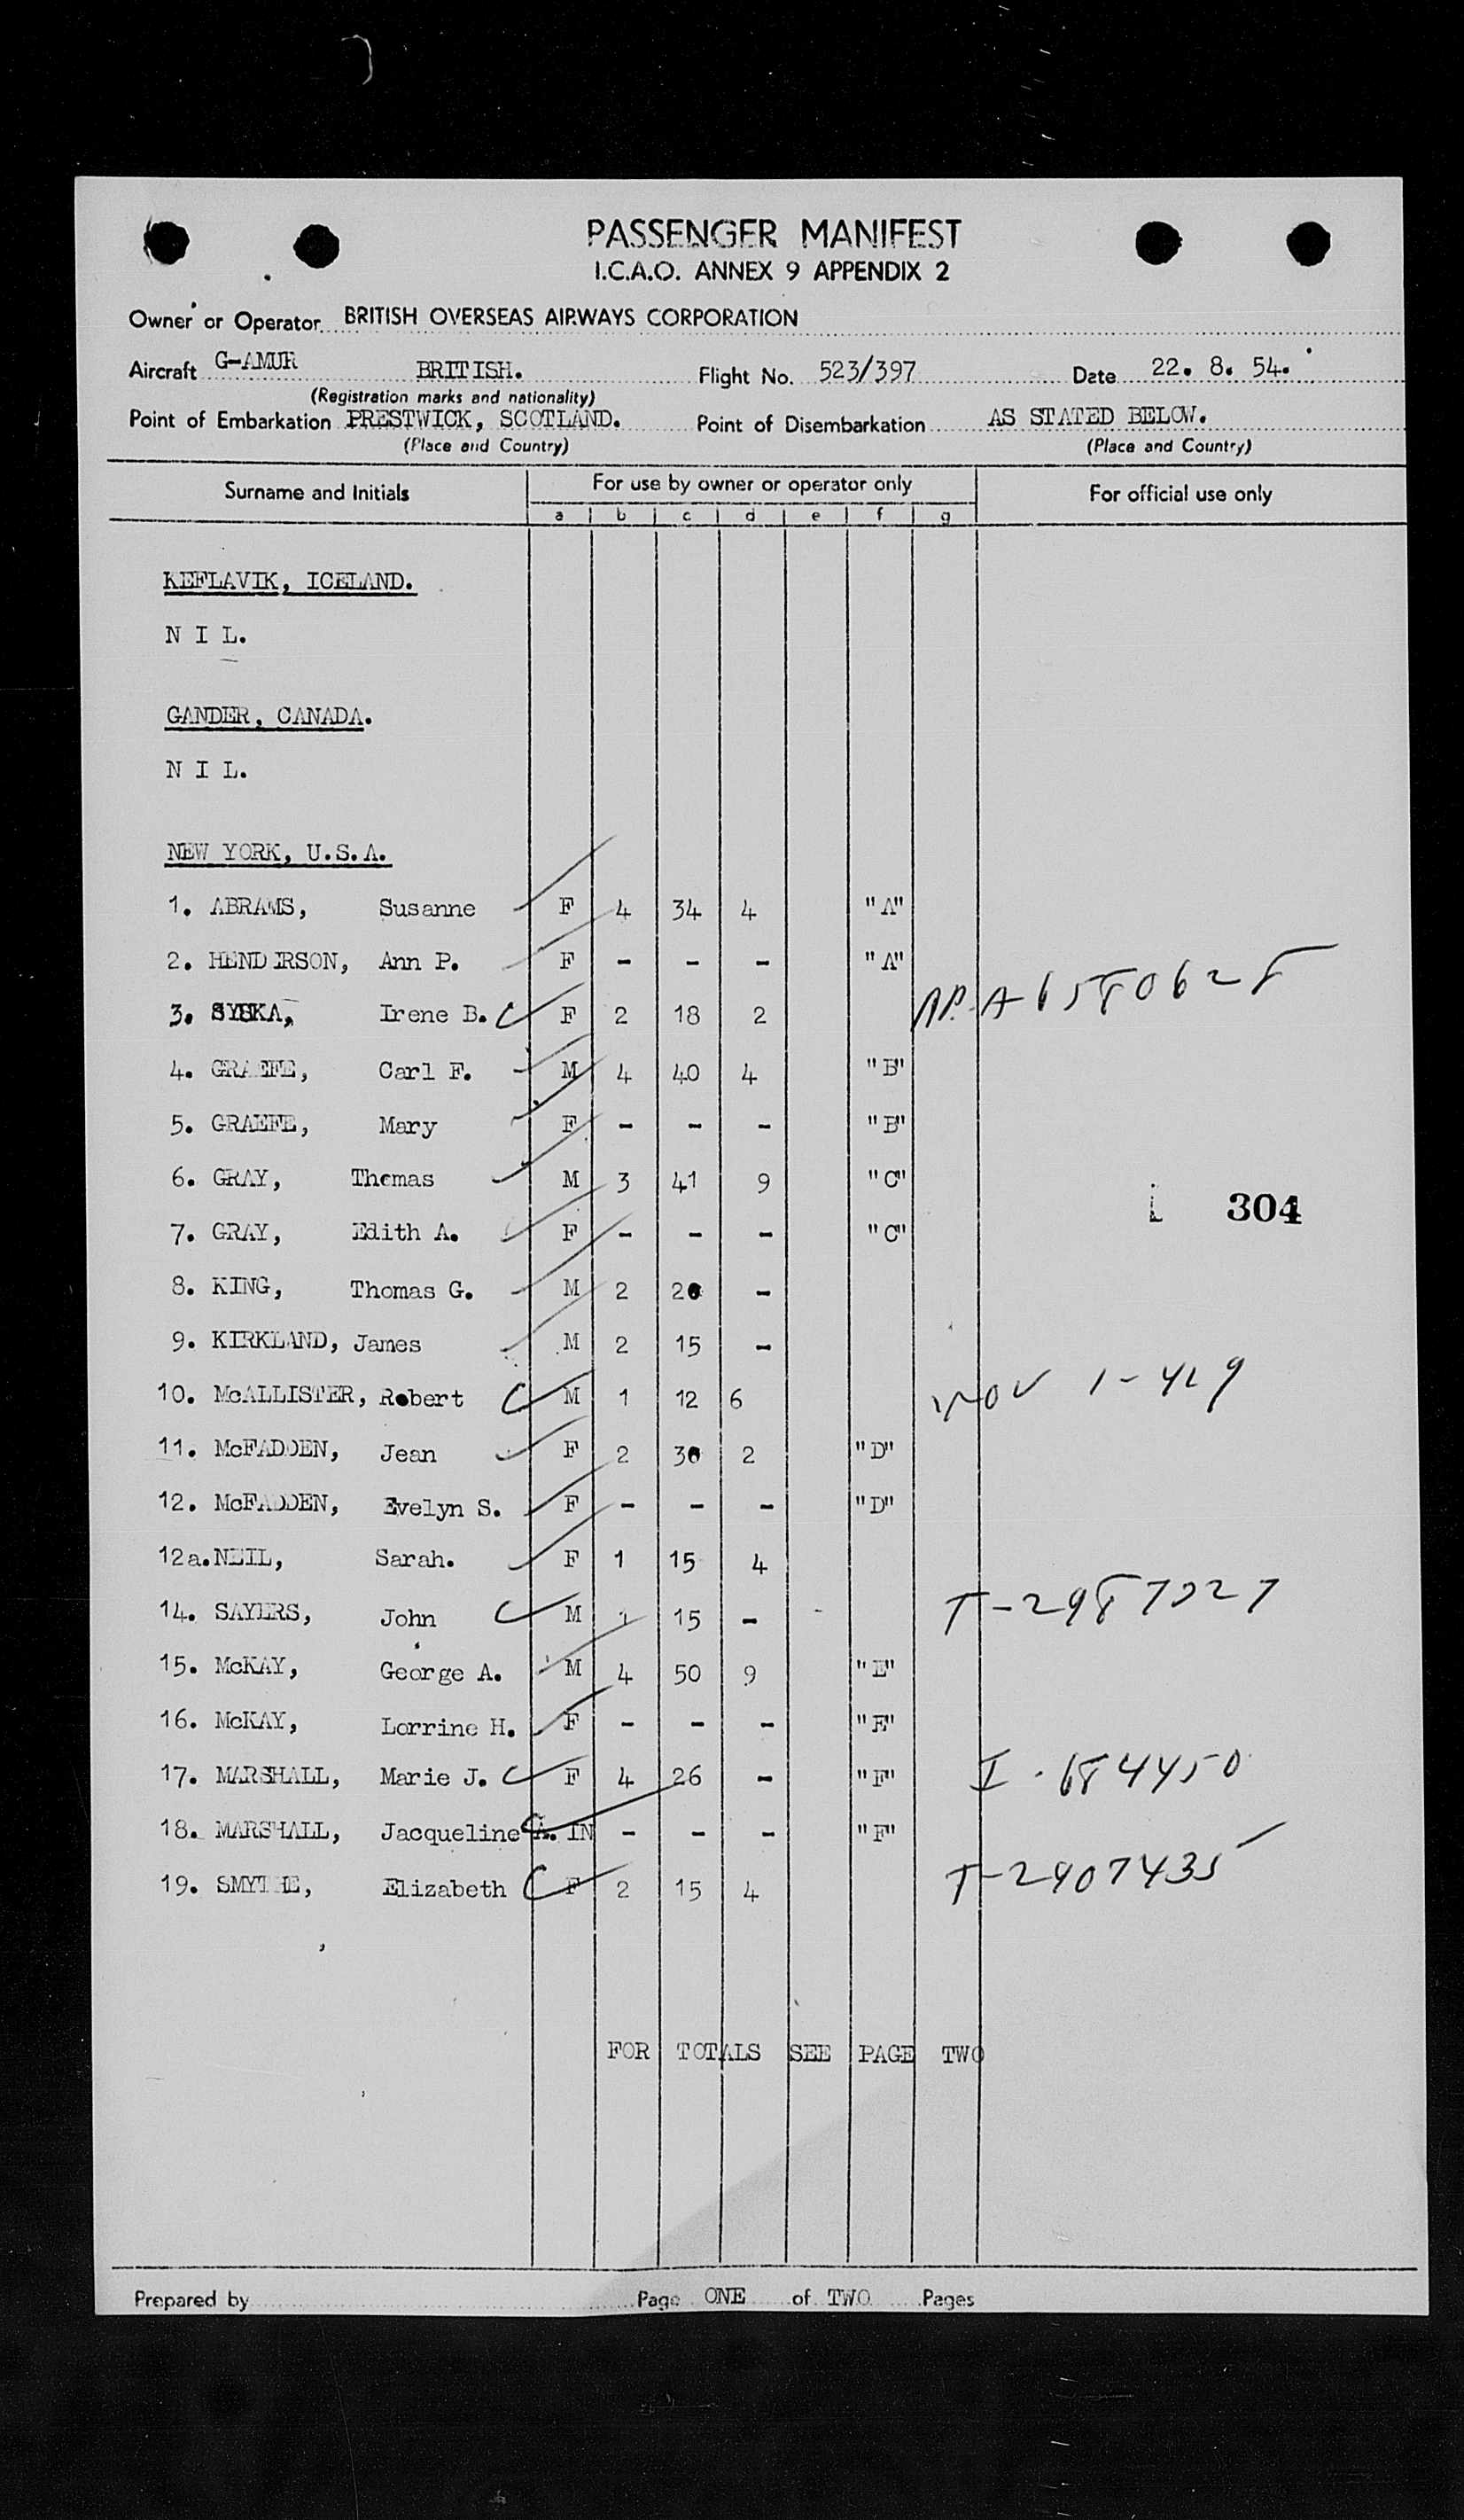 PASSENGER MANIFEST
I.C.A.O. ANNEX 9 APPENDIX 2
Owner or Operator BRITISH OVERSEAS AIRWAYS CORPORATION
Aircraft G-AMUR BRITISH. Flight No. 523/397 Date 22. 8. 54.
(Registration marks and nationality)
Point of Embarkation PRESTWICK, SCOTLAND. Point of Disembarkation AS STATED BELOW.
(Place and Country) (Place and Country)
Surname and Initials For use by owner or operator only For official use only
a b c d e f g
KEFLAVIK, ICELAND.
N I L.
GANDER, CANADA.
N I L.
NEW YORK, U.S.A.
1. ABRAMS, Susanne F 4 34 4 "A"
2. HENDERSON, Ann P. F - - - "A"
3. SYSKA, Irene B. F 2 18 2 A6580628
4. GRAEFE, Carl F. M 4 40 4 "B"
5. GRAEFE, Mary F - - - "B"
6. GRAY, Thomas M 3 41 9 "C"
304
7. GRAY, Edith A. F - - - "C"
8. KING, Thomas G. M 2 20 -
9. KIRKLAND, James M 2 15 -
10. McALLISTER, Robert M 1 12 6
11. McFADDEN, Jean F 2 30 2 "D"
12. McFADDEN, Evelyn S. F - - - "D"
12a. NEIL, Sarah. F 1 15 4
14. SAYERS, John M 1 15 - T-2987027
15. McKAY, George A. M 4 50 9 "E"
16. McKAY, Lorrine H. F - - - "E"
17. MARSHALL, Marie J. F 4 26 - "F" I-684450
18. MARSHALL, Jacqueline A. IN - - - "F"
19. SMYTHE, Elizabeth F 2 15 4 T-2907435
FOR TOTALS SEE PAGE TWO
Prepared by Page ONE of TWO Pages